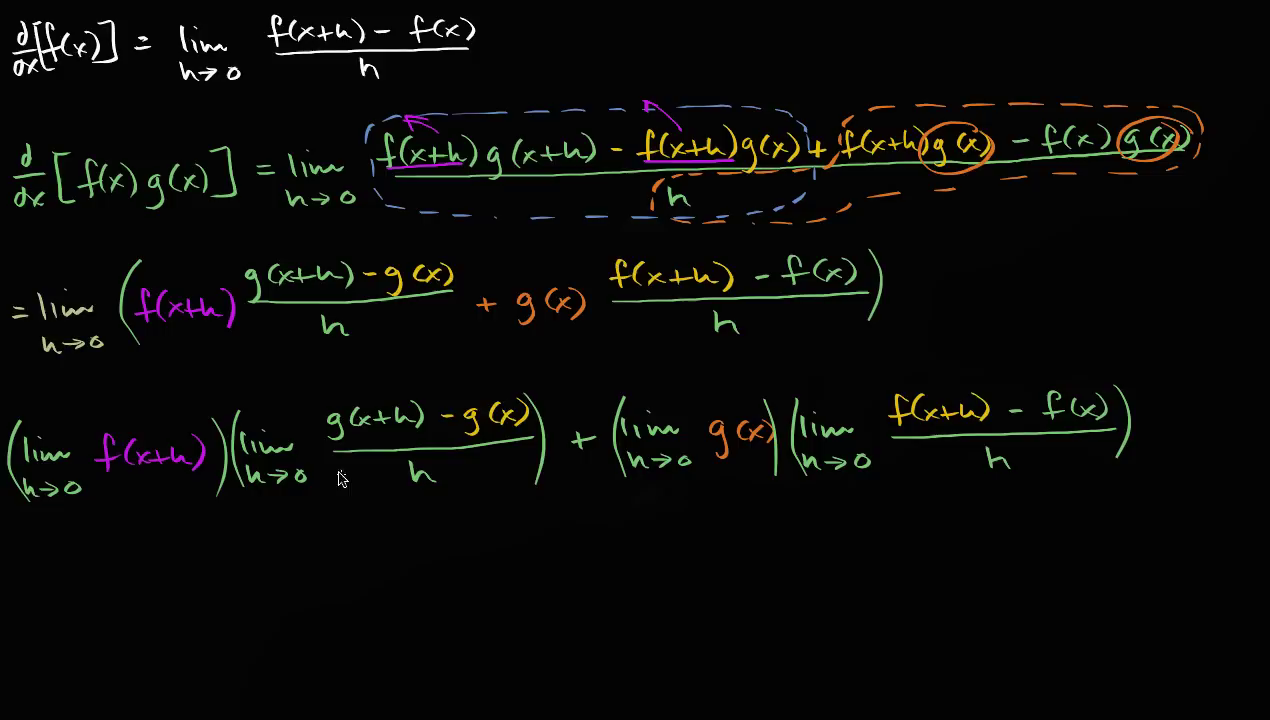 d/dx [f(x)] = lim h→0 (f(x+h) - f(x))/h
d/dx [f(x) g(x)] = lim h→0 (f(x+h) g(x+h) - f(x+h) g(x) + f(x+h) g(x) - f(x) g(x))/h
= lim h→0 ( f(x+h) (g(x+h) - g(x))/h + g(x) (f(x+h) - f(x))/h )
(lim h→0 f(x+h)) (lim h→0 (g(x+h) - g(x))/h) + (lim h→0 g(x)) (lim h→0 (f(x+h) - f(x))/h)